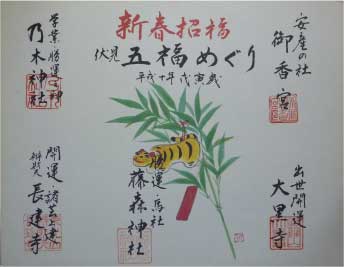 新春招福
伏見 五福めぐり
平成十年戊寅歳
安産の社
御香宮
出世開運
大黒寺
勝運・馬社
藤森神社
学業・勝運の神
乃木神社
開運・諸芸上達
辨財天
長建寺